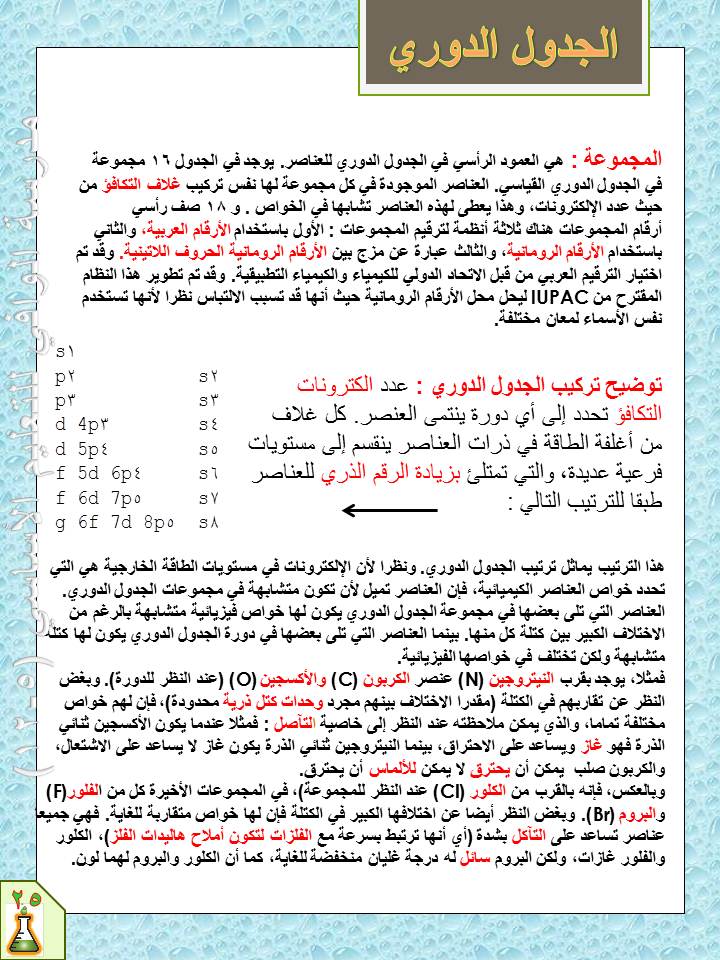 الجدول الدوري
المجموعة : هي العمود الرأسي في الجدول الدوري للعناصر. يوجد في الجدول ١٦ مجموعة
في الجدول الدوري القياسي. العناصر الموجودة في كل مجموعة لها نفس تركيب غلاف التكافؤ من
حيث عدد الإلكترونات، وهذا يعطى لهذه العناصر تشابها في الخواص . و ١٨ صف رأسي
أرقام المجموعات هناك ثلاثة أنظمة لترقيم المجموعات : الأول باستخدام الأرقام العربية، والثاني
باستخدام الأرقام الرومانية، والثالث عبارة عن مزج بين الأرقام الرومانية الحروف اللاتينية. وقد تم
اختيار الترقيم العربي من قبل الاتحاد الدولي للكيمياء والكيمياء التطبيقية. وقد تم تطوير هذا النظام
المقترح من IUPAC ليحل محل الأرقام الرومانية حيث أنها قد تسبب الالتباس نظرا لأنها تستخدم
نفس الأسماء لمعان مختلفة.
توضيح تركيب الجدول الدوري : عدد الكترونات
التكافؤ تحدد إلى أي دورة ينتمى العنصر. كل غلاف
من أغلفة الطاقة في ذرات العناصر ينقسم إلى مستويات
فرعية عديدة، والتي تمتلئ بزيادة الرقم الذري للعناصر
طبقا للترتيب التالي :
s١
p٢ s٢
p٣ s٣
d 4p٣ s٤
d 5p٤ s٥
f 5d 6p٤ s٦
f 6d 7p٥ s٧
g 6f 7d 8p٥ s٨
هذا الترتيب يماثل ترتيب الجدول الدوري. ونظرا لأن الإلكترونات في مستويات الطاقة الخارجية هي التي
تحدد خواص العناصر الكيميائية، فإن العناصر تميل لأن تكون متشابهة في مجموعات الجدول الدوري.
العناصر التي تلى بعضها في مجموعة الجدول الدوري يكون لها خواص فيزيائية متشابهة بالرغم من
الاختلاف الكبير بين كتلة كل منها. بينما العناصر التي تلى بعضها في دورة الجدول الدوري يكون لها كتلة
متشابهة ولكن تختلف في خواصها الفيزيائية.
فمثلا، يوجد بقرب النيتروجين (N) عنصر الكربون (C) والأكسجين (O) (عند النظر للدورة). وبغض
النظر عن تقاربهم في الكتلة (مقدرا الاختلاف بينهم مجرد وحدات كتل ذرية محدودة)، فإن لهم خواص
مختلفة تماما، والذي يمكن ملاحظته عند النظر إلى خاصية التآصل : فمثلا عندما يكون الأكسجين ثنائي
الذرة فهو غاز ويساعد على الاحتراق، بينما النيتروجين ثنائي الذرة يكون غاز لا يساعد على الاشتعال،
والكربون صلب يمكن أن يحترق لا يمكن للألماس أن يحترق.
وبالعكس، فإنه بالقرب من الكلور (Cl) عند النظر للمجموعة)، في المجموعات الأخيرة كل من الفلور(F)
والبروم (Br). وبغض النظر أيضا عن اختلافها الكبير في الكتلة فإن لها خواص متقاربة للغاية. فهي جميعا
عناصر تساعد على التآكل بشدة (أي أنها ترتبط بسرعة مع الفلزات لتكون أملاح هاليدات الفلز)، الكلور
والفلور غازات، ولكن البروم سائل له درجة غليان منخفضة للغاية، كما أن الكلور والبروم لهما لون.
٢٥